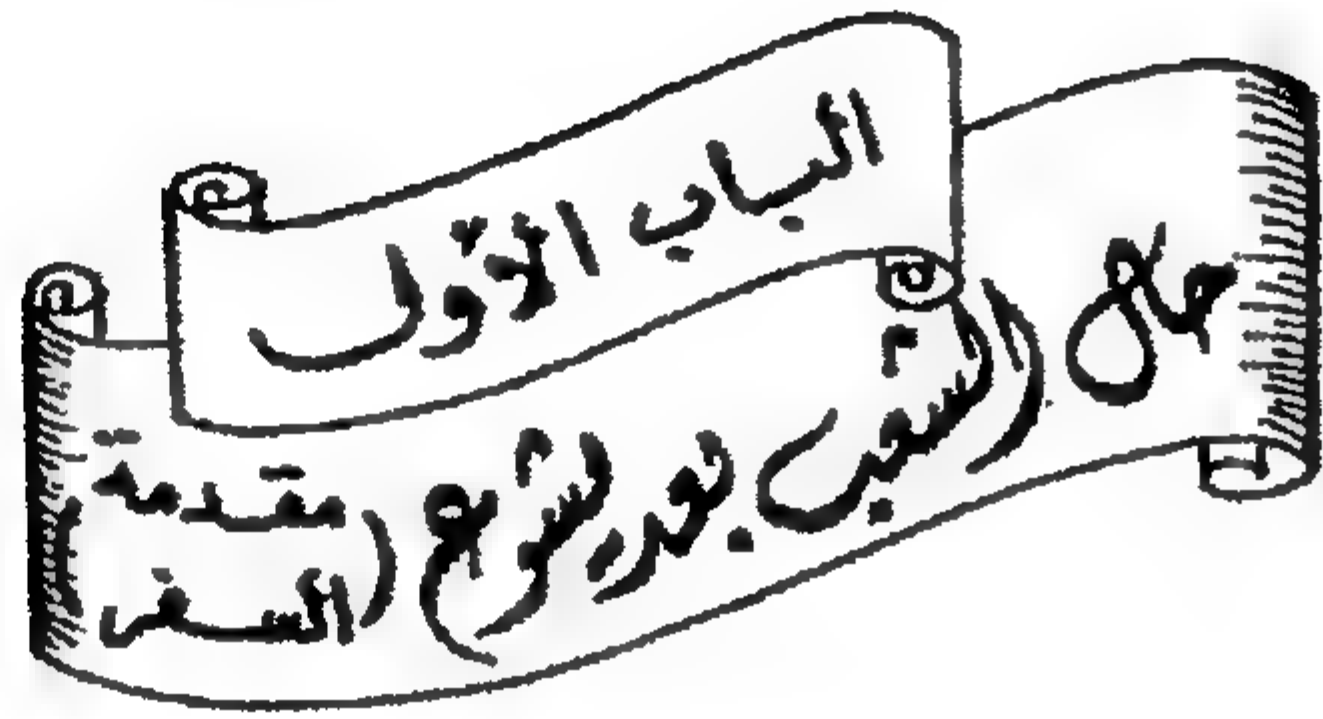 الباب الأوّل
حال الشعب بعد يشوع (مقدمة
السفر